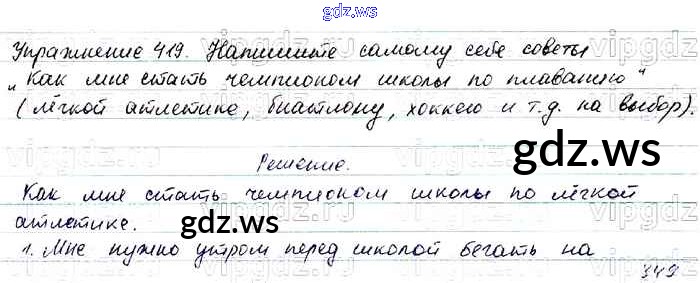 gdz.ws
Упражнение 419. Напишите самому себе советы
„Как мне стать чемпионом школы по плаванию"
(лёгкой атлетике, биатлону, хоккею и т.д. на выбор).
gdz.ws
Решение.
Как мне стать чемпионом школы по лёгкой
атлетике.
gdz.ws
1. Мне нужно утром перед школой бегать на
349
gdz.ws